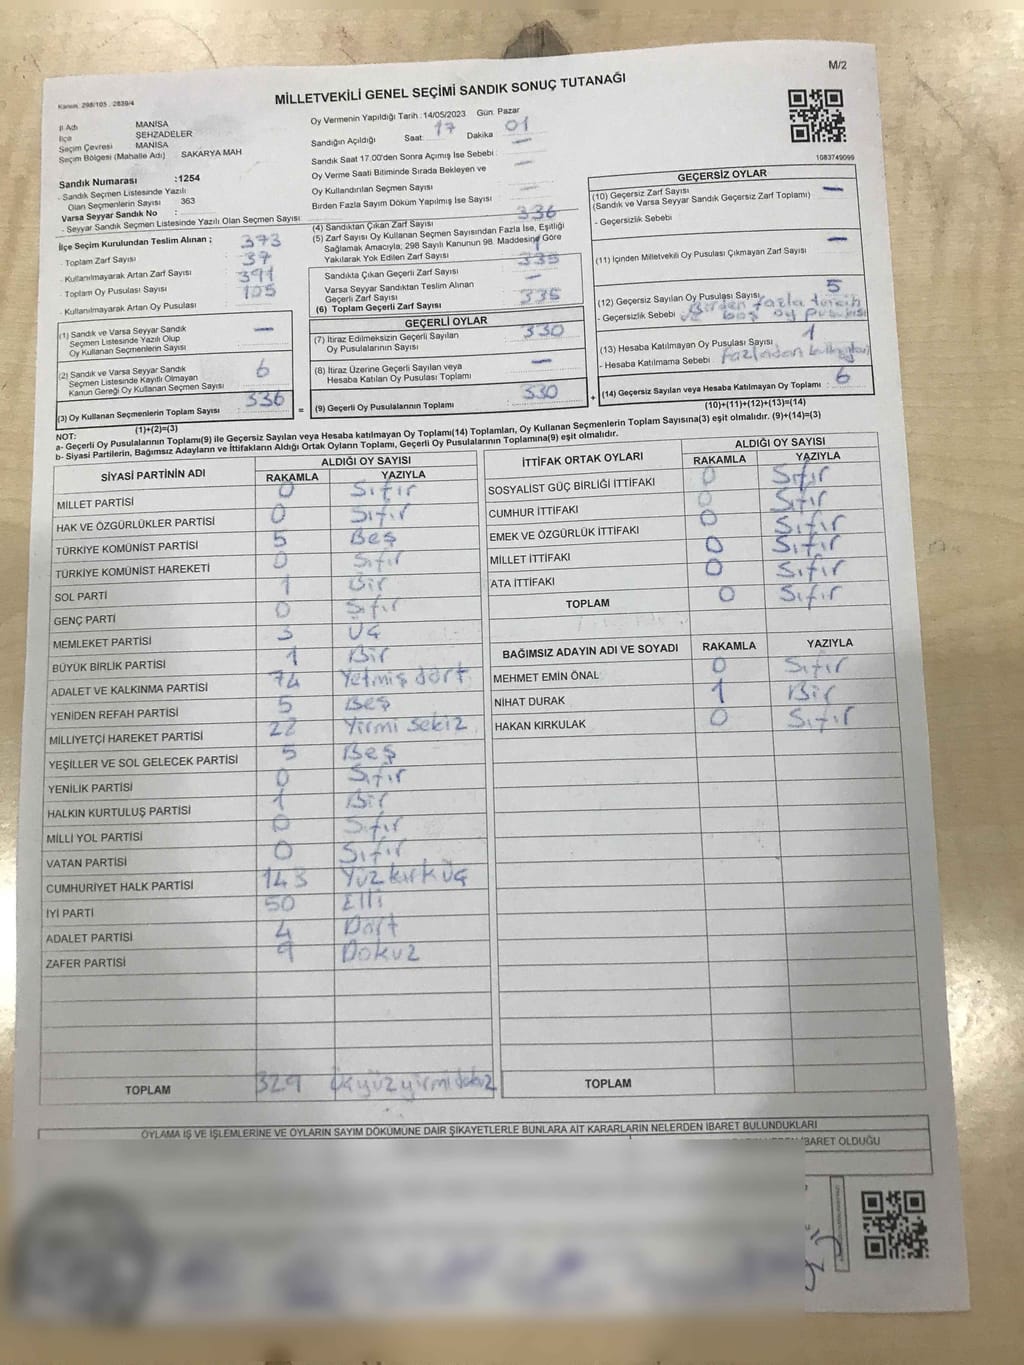 M/2
Kanun. 298/105 . 2839/4
MİLLETVEKİLİ GENEL SEÇİMİ SANDIK SONUÇ TUTANAĞI
İl Adı MANİSA
İlçe ŞEHZADELER
Seçim Çevresi MANİSA
Seçim Bölgesi (Mahalle Adı) SAKARYA MAH
Sandık Numarası :1254
- Sandık Seçmen Listesinde Yazılı
Olan Seçmenlerin Sayısı 363
Varsa Seyyar Sandık No :
- Seyyar Sandık Seçmen Listesinde Yazılı Olan Seçmen Sayısı :
İlçe Seçim Kurulundan Teslim Alınan ;
- Toplam Zarf Sayısı : 373
- Kullanılmayarak Artan Zarf Sayısı : 37
- Toplam Oy Pusulası Sayısı : 391
- Kullanılmayarak Artan Oy Pusulası : 105
(1) Sandık ve Varsa Seyyar Sandık
Seçmen Listesinde Yazılı Olup
Oy Kullanan Seçmenlerin Sayısı —
(2) Sandık ve Varsa Seyyar Sandık
Seçmen Listesinde Kayıtlı Olmayan
Kanun Gereği Oy Kullanan Seçmen Sayısı : 6
(3) Oy Kullanan Seçmenlerin Toplam Sayısı : 336
(1)+(2)=(3)
Oy Vermenin Yapıldığı Tarih : 14/05/2023 Gün: Pazar
Sandığın Açıldığı Saat: 17 Dakika : 01
Sandık Saat 17.00'den Sonra Açımış İse Sebebi : —
Oy Verme Saati Bitiminde Sırada Bekleyen ve
Oy Kullandırılan Seçmen Sayısı —
Birden Fazla Sayım Döküm Yapılmış İse Sayısı : —
(4) Sandıktan Çıkan Zarf Sayısı : 336
(5) Zarf Sayısı Oy Kullanan Seçmen Sayısından Fazla İse, Eşitliği
Sağlamak Amacıyla; 298 Sayılı Kanunun 98. Maddesine Göre
Yakılarak Yok Edilen Zarf Sayısı :
Sandıkta Çıkan Geçerli Zarf Sayısı 335
Varsa Seyyar Sandıktan Teslim Alınan
Geçerli Zarf Sayısı —
(6) Toplam Geçerli Zarf Sayısı : 335
GEÇERLİ OYLAR
(7) İtiraz Edilmeksizin Geçerli Sayılan
Oy Pusulalarının Sayısı : 330
(8) İtiraz Üzerine Geçerli Sayılan veya
Hesaba Katılan Oy Pusulası Toplamı : —
= (9) Geçerli Oy Pusulalarının Toplamı : 330 +
1083749099
GEÇERSİZ OYLAR
(10) Geçersiz Zarf Sayısı —
(Sandık ve Varsa Seyyar Sandık Geçersiz Zarf Toplamı)
- Geçersizlik Sebebi
(11) İçinden Milletvekili Oy Pusulası Çıkmayan Zarf Sayısı —
(12) Geçersiz Sayılan Oy Pusulası Sayısı : 5
- Geçersizlik Sebebi Birden fazla tercih
ve boş oy pusulası
(13) Hesaba Katılmayan Oy Pusulası Sayısı : 1
- Hesaba Katılmama Sebebi : fazladan
(14) Geçersiz Sayılan veya Hesaba Katılmayan Oy Toplamı : 6
(10)+(11)+(12)+(13)=(14)
NOT:
a- Geçerli Oy Pusulalarının Toplamı(9) ile Geçersiz Sayılan veya Hesaba katılmayan Oy Toplamı(14) Toplamları, Oy Kullanan Seçmenlerin Toplam Sayısına(3) eşit olmalıdır. (9)+(14)=(3)
b- Siyasi Partilerin, Bağımsız Adayların ve İttifakların Aldığı Ortak Oyların Toplamı, Geçerli Oy Pusulalarının Toplamına(9) eşit olmalıdır.
SİYASİ PARTİNİN ADI ALDIĞI OY SAYISI
RAKAMLA YAZIYLA
MİLLET PARTİSİ 0 Sıfır
HAK VE ÖZGÜRLÜKLER PARTİSİ 0 Sıfır
TÜRKİYE KOMÜNİST PARTİSİ 5 Beş
TÜRKİYE KOMÜNİST HAREKETİ 0 Sıfır
SOL PARTİ 1 Bir
GENÇ PARTİ 0 Sıfır
MEMLEKET PARTİSİ 3 Üç
BÜYÜK BİRLİK PARTİSİ 1 Bir
ADALET VE KALKINMA PARTİSİ 74 Yetmiş dört
YENİDEN REFAH PARTİSİ 5 Beş
MİLLİYETÇİ HAREKET PARTİSİ 28 Yirmi sekiz
YEŞİLLER VE SOL GELECEK PARTİSİ 5 Beş
YENİLİK PARTİSİ 0 Sıfır
HALKIN KURTULUŞ PARTİSİ 1 Bir
MİLLİ YOL PARTİSİ 0 Sıfır
VATAN PARTİSİ 0 Sıfır
CUMHURİYET HALK PARTİSİ 143 Yüz kırk üç
İYİ PARTİ 50 Elli
ADALET PARTİSİ 4 Dört
ZAFER PARTİSİ 9 Dokuz
TOPLAM 329 üçyüzyirmidokuz
İTTİFAK ORTAK OYLARI ALDIĞI OY SAYISI
RAKAMLA YAZIYLA
SOSYALİST GÜÇ BİRLİĞİ İTTİFAKI 0 Sıfır
CUMHUR İTTİFAKI 0 Sıfır
EMEK VE ÖZGÜRLÜK İTTİFAKI 0 Sıfır
MİLLET İTTİFAKI 0 Sıfır
ATA İTTİFAKI 0 Sıfır
TOPLAM 0 Sıfır
BAĞIMSIZ ADAYIN ADI VE SOYADI RAKAMLA YAZIYLA
MEHMET EMİN ÖNAL 0 Sıfır
NİHAT DURAK 1 Bir
HAKAN KIRKULAK 0 Sıfır
TOPLAM
OYLAMA İŞ VE İŞLEMLERİNE VE OYLARIN SAYIM DÖKÜMÜNE DAİR ŞİKAYETLERLE BUNLARA AİT KARARLARIN NELERDEN İBARET BULUNDUKLARI
İBARET OLDUĞU